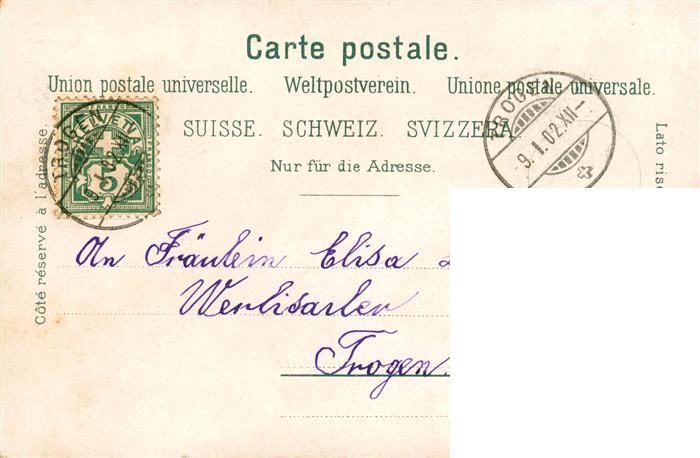 Carte postale.
Union postale universelle. Weltpostverein. Unione postale universale.
SUISSE. SCHWEIZ. SVIZZERA.
Nur für die Adresse.
Côté réservé à l'adresse.
Lato rise
TROGEN
9.I.02.XII-
TROGEN
5
An Fräulein Elisa
Trogen.